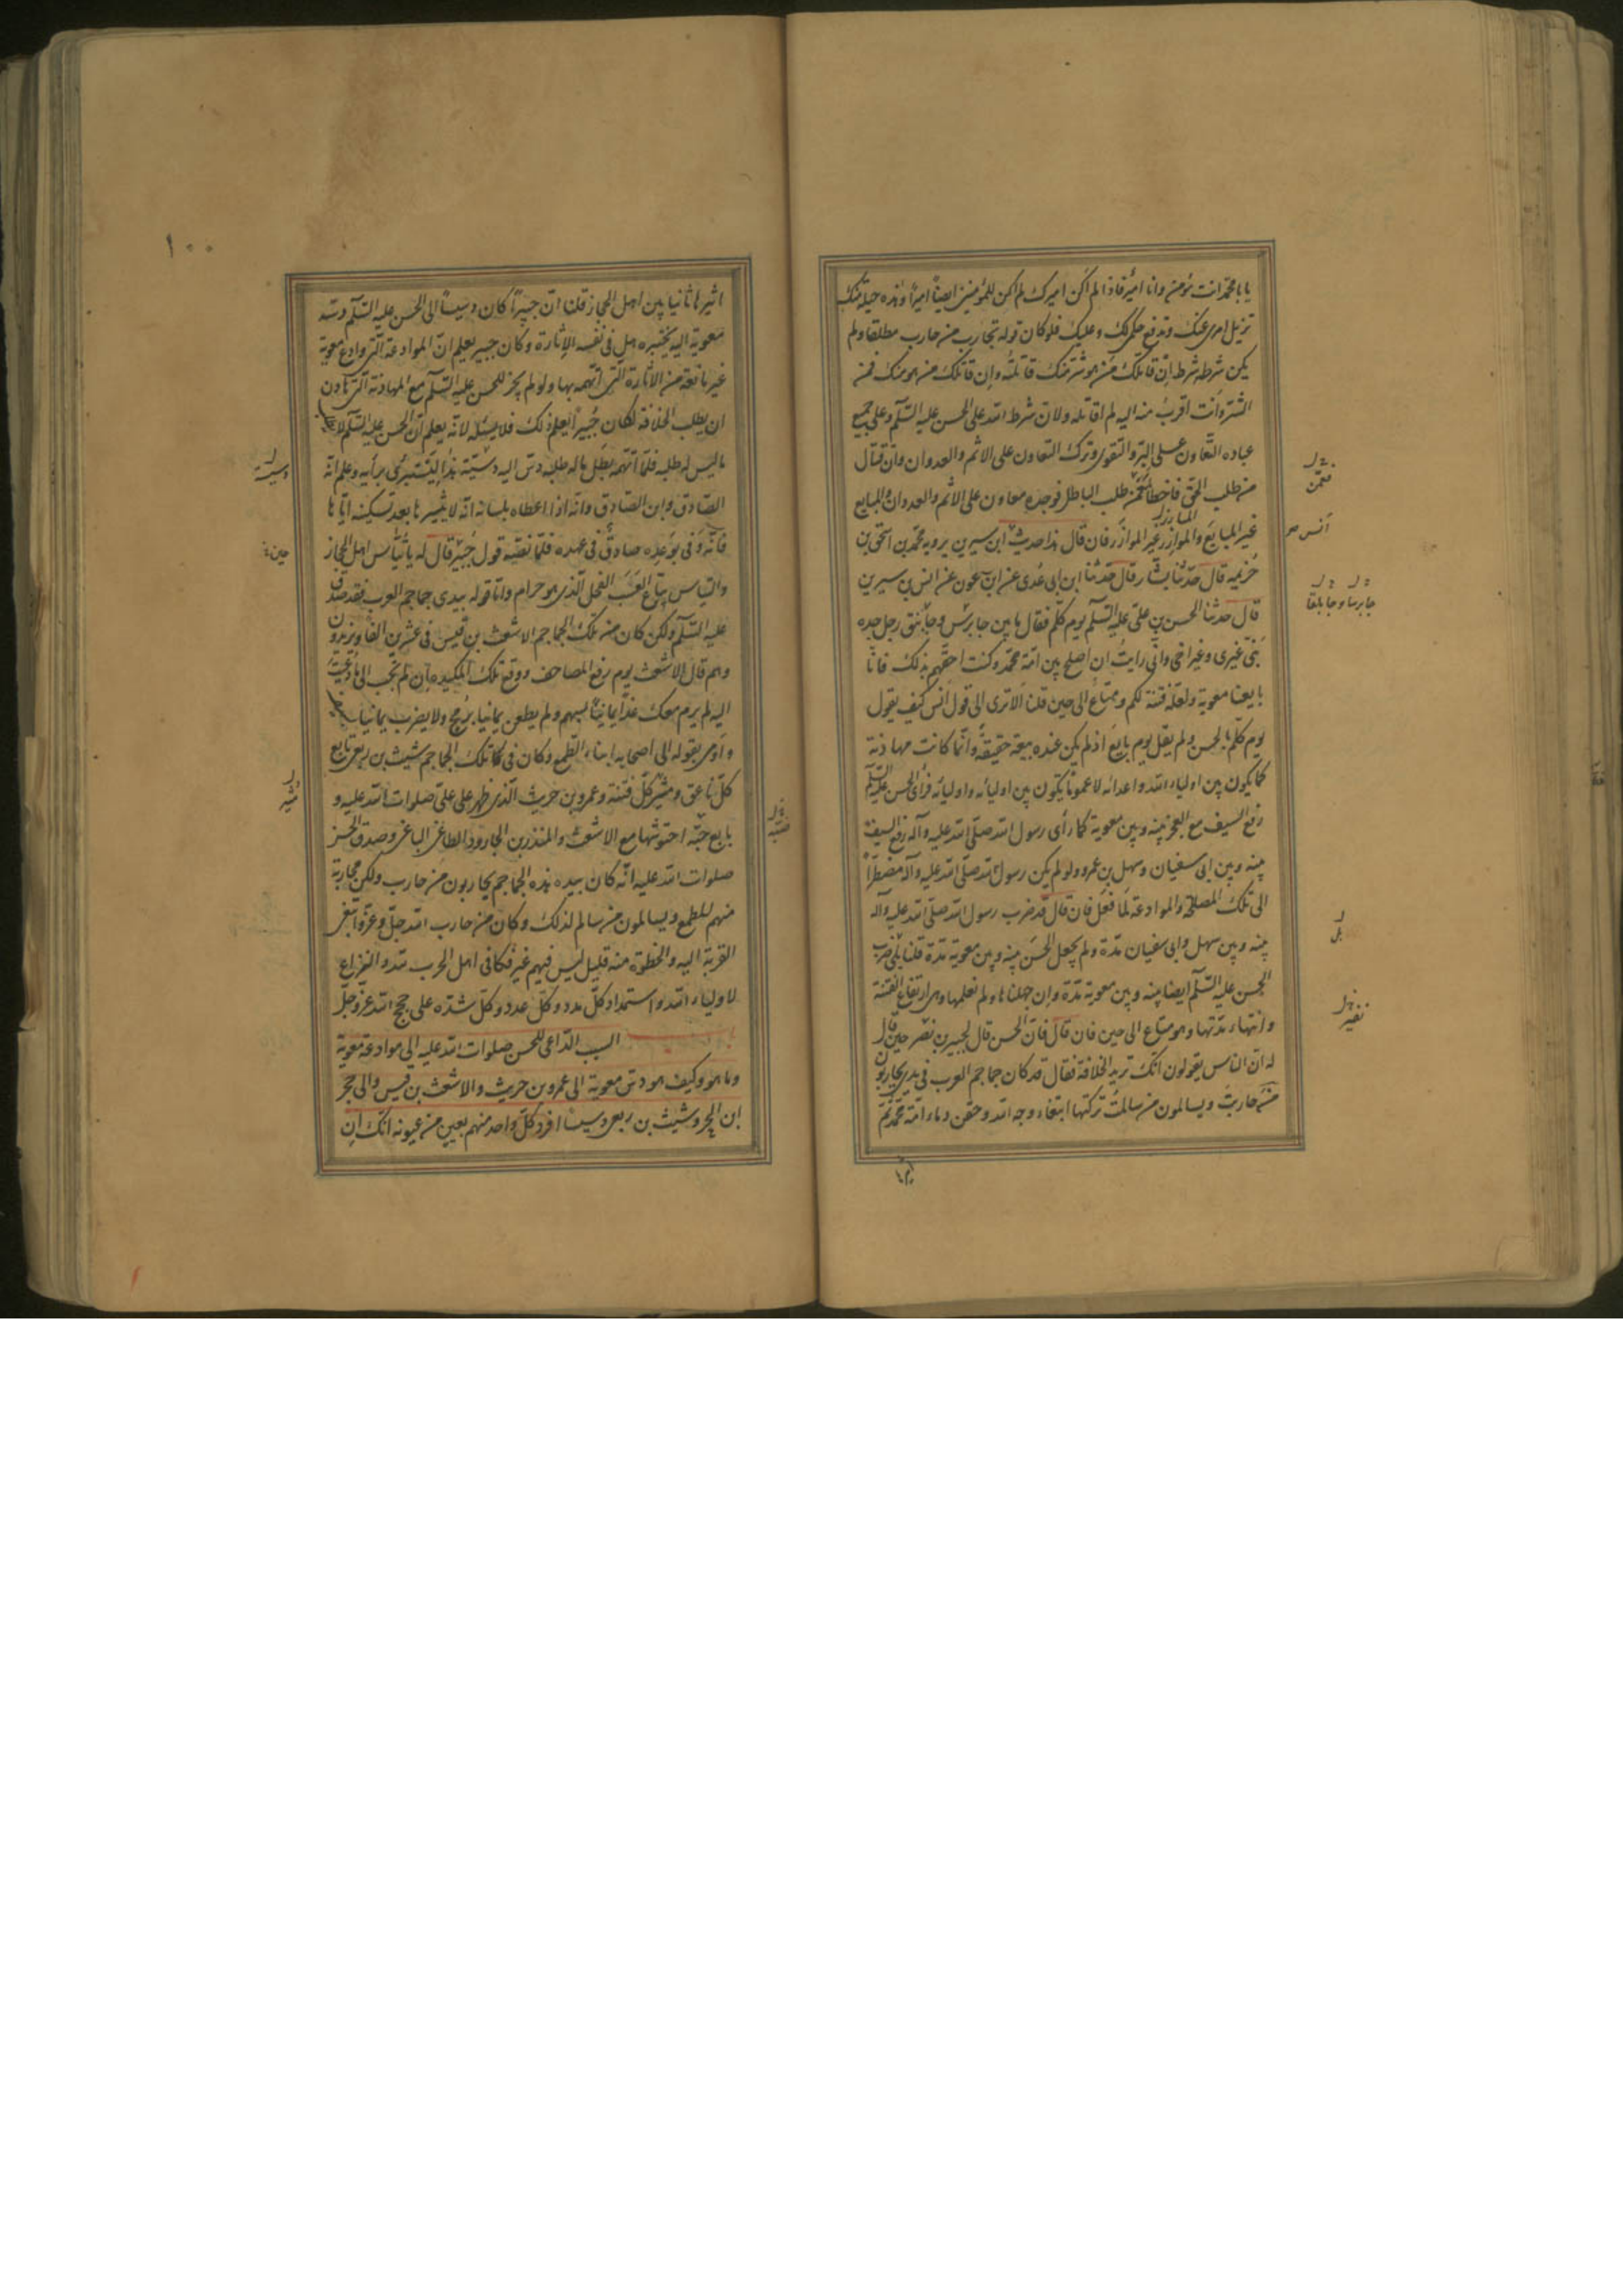 يا با محمد انت مؤمن وانا امير فاذا لم اكن اميرك لم اكن للمؤمنين ايضاً اميراً وهذه حيلة منك
تزيل امرى عنك وتدفع حكمى لك وعليك فلو كان قوله تحارب من حارب مطلقا ولم
يكن شرطه شرط ان قاتلك من هو شر منك قاتلته وان قاتلك من هو مثلك فى
الشر وانت اقرب منه اليه لم اقاتله ولان شرط الله على الحسن عليه السلم وعلى جميع
عباده التعاون على البر والتقوى وترك التعاون على الاثم والعدوان وان قتال
من طلب الحق فاخطأه مع من طلب الباطل فوجده معاون على الاثم والعدوان والمبايع
غير المبايع والموازر غير الموازر فان قال هذا حديث ابن سيرين يرويه محمد بن اسحق بن
خزيمه قال حدثنا بشار قال حدثنا ابن ابى عدى عن ابن عون عن انس بن سيرين
قال حدثنا الحسن بن على عليه السلم يوم كلم فقال ما بين جابرس وجابلق رجل جده
نبى غيرى وغير اخى وانى رايت ان اصلح بين امة محمد وكنت احقهم بذلك فانا
بايعنا معوية ولعله فتنة لكم ومتاع الى حين قلنا الا ترى الى قول انس كيف يقول
يوم كلم الحسن ولم يقل يوم بايع اذ لم يكن عنده بيعة حقيقة وانما كانت مهادنة
كما يكون بين اولياء الله واعدائه لا كما يكون بين اوليائه واوليائه فرأى الحسن عليه السلم
رفع السيف مع العجز بينه وبين معوية كما رأى رسول الله صلى الله عليه وآله رفع السيف
بينه وبين ابى سفيان وسهل بن عمرو ولو لم يكن رسول الله صلى الله عليه وآله مضطراً
الى تلك المصلحة والموادعة لما فعل فان قال قد ضرب رسول الله صلى الله عليه وآله
بينه وبين سهل وابى سفيان مدة ولم يجعل الحسن بينه وبين معوية مدة قلنا بلى ضرب
الحسن عليه السلم ايضا بينه وبين معوية مدة وان جهلناها ولم نعلمها وهى ارتفاع الفتنة
وانتهاء مدتها وهو متاع الى حين فان قال فان الحسن قال لجبير بن نفير حين قال
له ان الناس يقولون انك تريد الخلافة فقال قد كان جماجم العرب فى يدى يحاربون
من حاربت ويسالمون من سالمت تركتها ابتغاء وجه الله وحقن دماء امة محمد ثم
جابرسا وجابلقا
بل
نفير
١٠٠
اثيرها ثانيا بين اهل الحجاز قلنا ان جبيراً كان دسيساً الى الحسن عليه السلم دسه
معوية اليه يختبره هل فى نفسه الاثارة وكان جبير يعلم ان الموادعة التى وادع معوية
غير مانعة من الاثارة التى اتهمه بها ولو لم يجز للحسن عليه السلم مع المهادنة التى هادن
ان يطلب الخلافة لكان جبير يعلم ذلك فلا يسئله لانه يعلم ان الحسن عليه السلم لا يطلب
ما ليس له طلبه فلما اتهمه بطلب ما له طلبه دس اليه دسيسته هذا ليستبرى برأيه وعلم انه
الصادق وابن الصادق وانه اذا اعطاه بلسانه انه لا يثيرها بعد تسكينه اياها
فانه وفى بوعده صادق فى عهده فلما نقمه قول جبير قال له يا تياس اهل الحجاز
والتياس بياع العسب الفحل الذى هو حرام واما قوله بيدى جماجم العرب فقد صدق
عليه السلم ولكن كان من تلك الجماجم الاشعث بن قيس فى عشرين الفا ويزيدون
وهم قال الاشعث يوم رفع المصاحف ووقع تلك المكيدة ان لم تجب الى ما دعيت
اليه لم يرم معك غداً يمانيان بسهم ولم يطعن يمانيا برمح ولا يضرب يمانيان
واومى بقوله الى اصحابه ابناء الطمع وكان فى تلك الجماجم شيث بن ربعى تابع
كل ناعق ومثير كل فتنة وعمرو بن حريث الذى ظهر على على صلوات الله عليه و
بايع ضبة احتوشها مع الاشعث والمنذر بن الجارود الطاغى الباغى وصدق الحسن
صلوات الله عليه انه كان بيده هذه الجماجم يحاربون من حارب ولكن محاربة
منهم للطمع ويسالمون من سالم لذلك وكان من حارب الله جل وعز وابتغى
القربة اليه والحظوة منه قليل ليس فيهم غير فكافى اهل الحرب لله والنزاع
لاولياء الله واستمداد كل مدد وكل عدد وكل شدة على حجج الله عز وجل
السبب الداعى للحسن صلوات الله عليه الى موادعة معوية
وما هو وكيف هو دس معوية الى عمرو بن حريث والاشعث بن قيس والى حجر
ابن الحجر وشيث بن ربعى دسيسا افرد كل واحد منهم بعين من عيونه انك ان